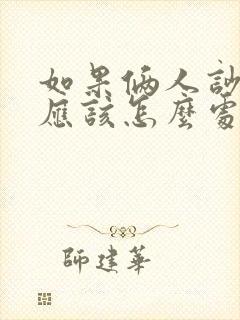 如果俩人訬
應該怎麼處
師建華